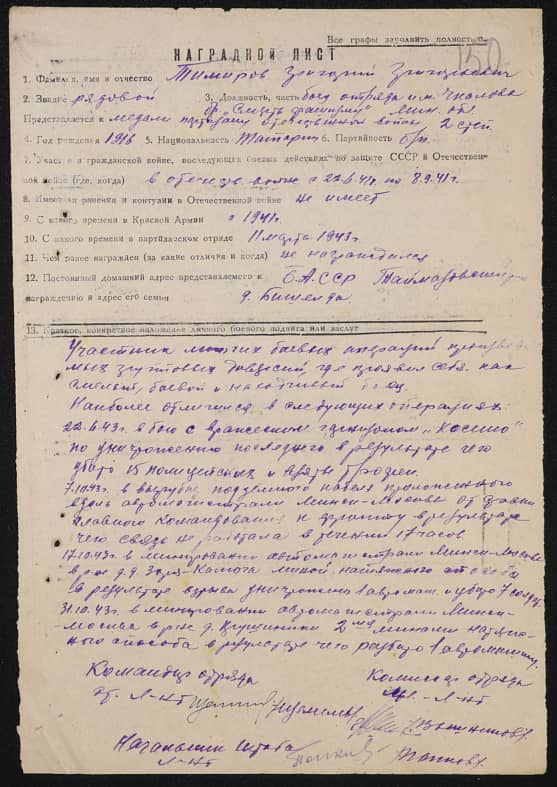 Все графы заполнять полностью.
150
НАГРАДНОЙ ЛИСТ
1. Фамилия, имя и отчество Тимиров Григорий Григорьевич
2. Звание рядовой 3. Должность, часть отряда им. Чкалова
бр. „Смерть фашизму" Мин. обл
Представляется к медали партизану отечественной войны 2 степ.
4. Год рождения 1916 5. Национальность Татарин 6. Партийность б/п.
7. Участие в гражданской войне, последующих боевых действиях по защите СССР и Отечествен-
ной войне (где, когда) в отечеств. войне с 22.6.41г. по 8.9.41г.
8. Имеет ли ранения и контузии в Отечественной войне не имеет
9. С какого времени в Красной Армии с 1941г.
10. С какого времени в партизанском отряде 11 марта 1943г.
11. Чем ранее награжден (за какие отличия и когда) не награждался
12. Постоянный домашний адрес представляемого к Б.А.ССР
награждению и адрес его семьи д.
13. Краткое, конкретное изложение личного боевого подвига или заслуг
Участник многих боевых операций
групповых диверсий, где проявил себя как
смелый, боевой и находчивый боец.
Наиболее отличился в следующих операциях:
22.6.43г. в бою с вражеским гарнизоном „Косино"
по уничтожению последнего в результате чего
убито 15 полицейских и взяты трофеи.
7.10.43г. в вырубке подземного кабеля проложенного
вдоль автомагистрали Минск-Москва от
главного командования к фронту в результате
чего связь не работала в течении 17 часов
17.10.43г. в минировании автомагистрали Минск-Москва
в р-не д.д. миной натяжного способа
в результате взрыва уничтожено 1 автомаш. и убито 7
31.10.43г. в минировании автомагистрали Минск-
Москва в р-не д. 2мя минами натяж-
ного способа в результате чего разбито 1 автомашину
Командир отряда
ст. л-нт
Комиссар отряда
л-нт
Начальник штаба
л-нт